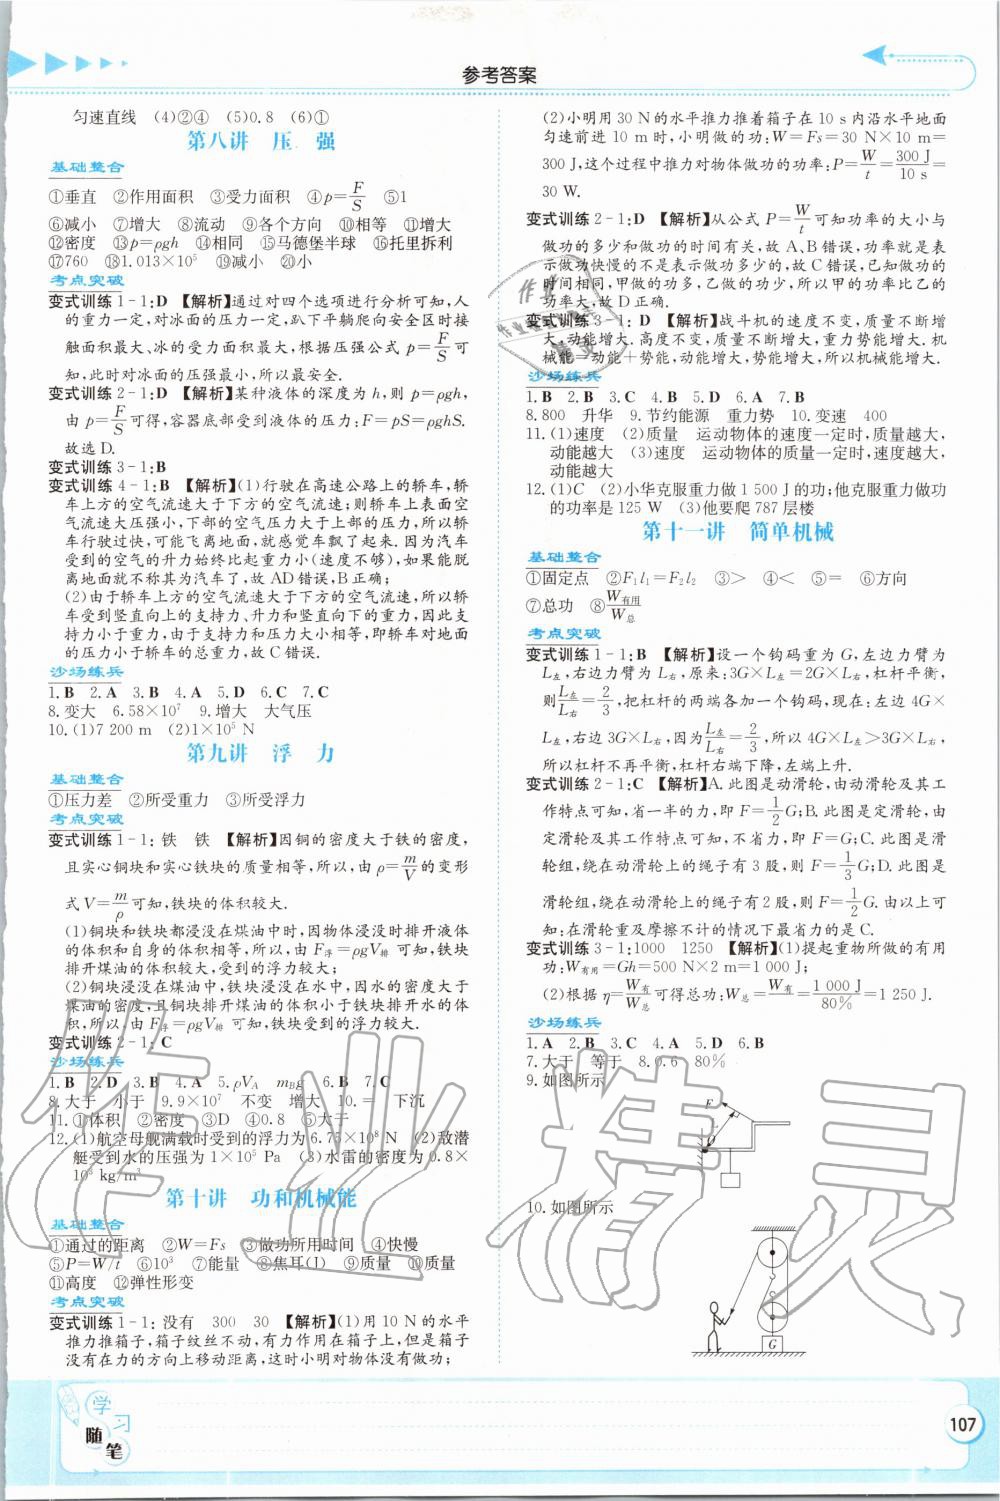 参考答案
匀速直线 (4)②④ (5)0.8 (6)①
第八讲 压 强
基础整合
①垂直 ②作用面积 ③受力面积 ④p=F/S ⑤1
⑥减小 ⑦增大 ⑧流动 ⑨各个方向 ⑩相等 ⑪增大
⑫密度 ⑬p=ρgh ⑭相同 ⑮马德堡半球 ⑯托里拆利
⑰760 ⑱1.013×10⁵ ⑲减小 ⑳小
考点突破
变式训练1-1:D 【解析】通过对四个选项进行分析可知,人
的重力一定,对冰面的压力一定,趴下平躺爬向安全区时接
触面积最大、冰的受力面积最大,根据压强公式p=F/S可
知,此时对冰面的压强最小,所以最安全.
变式训练2-1:D 【解析】某种液体的深度为h,则p=ρgh,
由p=F/S可得,容器底部受到液体的压力:F=pS=ρghS.
故选D.
变式训练3-1:B
变式训练4-1:B 【解析】(1)行驶在高速公路上的轿车,轿
车上方的空气流速大于下方的空气流速;则轿车上表面空
气流速大压强小,下部的空气压力大于上部的压力,所以轿
车行驶过快,可能飞离地面,就感觉车飘了起来.因为汽车
受到的空气的升力始终比起重力小(速度不够),如果能脱
离地面就不称其为汽车了,故AD错误,B正确;
(2)由于轿车上方的空气流速大于下方的空气流速,所以轿
车受到竖直向上的支持力、升力和竖直向下的重力,因此支
持力小于重力,由于支持力和压力大小相等,即轿车对地面
的压力小于轿车的总重力,故C错误.
沙场练兵
1.B 2.A 3.B 4.A 5.D 6.C 7.C
8.变大 6.58×10⁷ 9.增大 大气压
10.(1)7 200 m (2)1×10⁵ N
第九讲 浮 力
基础整合
①压力差 ②所受重力 ③所受浮力
考点突破
变式训练1-1:铁 铁 【解析】因铜的密度大于铁的密度,
且实心铜块和实心铁块的质量相等,所以,由ρ=m/V的变形
式V=m/ρ可知,铁块的体积较大.
(1)铜块和铁块都浸没在煤油中时,因物体浸没时排开液体
的体积和自身的体积相等,所以,由F浮=ρgV排可知,铁块
排开煤油的体积较大,受到的浮力较大;
(2)铜块浸没在煤油中,铁块浸没在水中,因水的密度大于
煤油的密度,且铜块排开煤油的体积小于铁块排开水的体
积,所以,由F浮=ρgV排可知,铁块受到的浮力较大.
变式训练2-1:C
沙场练兵
1.B 2.D 3.B 4.A 5.ρVA mBg 6.B 7.C
8.大于 小于 9.9×10⁷ 不变 增大 10.= 下沉
11.①体积 ②密度 ③D ④0.8 ⑤大于
12.(1)航空母舰满载时受到的浮力为6.75×10⁸ N (2)敌潜
艇受到水的压强为1×10⁵ Pa (3)水雷的密度为0.8×
10³ kg/m³
第十讲 功和机械能
基础整合
①通过的距离 ②W=Fs ③做功所用时间 ④快慢
⑤P=W/t ⑥10³ ⑦能量 ⑧焦耳(J) ⑨质量 ⑩质量
⑪高度 ⑫弹性形变
考点突破
变式训练1-1:没有 300 30 【解析】(1)用10 N的水平
推力推箱子,箱子纹丝不动,有力作用在箱子上,但是箱子
没有在力的方向上移动距离,这时小明对物体没有做功;
(2)小明用30 N的水平推力推着箱子在10 s内沿水平地面
匀速前进10 m时,小明做的功:W=Fs=30 N×10 m=
300 J,这个过程中推力对物体做功的功率:P=W/t=300 J/10 s=
30 W.
变式训练2-1:D 【解析】从公式P=W/t可知功率的大小与
做功的多少和做功的时间有关,故A、B错误,功率就是表
示做功快慢的不是表示做功多少的,故C错误,已知做功的
时间相同,甲做的功多,乙做的功少,所以甲的功率比乙的
功率大,故D正确.
变式训练3-1:D 【解析】战斗机的速度不变,质量不断增
大,动能增大.高度不变,质量不断增大,重力势能增大.机
械能=动能+势能,动能增大,势能增大,所以机械能增大.
沙场练兵
1.B 2.B 3.C 4.B 5.D 6.A 7.B
8.800 升华 9.节约能源 重力势 10.变速 400
11.(1)速度 (2)质量 运动物体的速度一定时,质量越大,
动能越大 (3)速度 运动物体的质量一定时,速度越大,
动能越大
12.(1)C (2)小华克服重力做了1 500 J的功;他克服重力做功
的功率是125 W (3)他要爬787层楼
第十一讲 简单机械
基础整合
①固定点 ②F₁l₁=F₂l₂ ③> ④< ⑤= ⑥方向
⑦总功 ⑧W有用/W总
考点突破
变式训练1-1:B 【解析】设一个钩码重为G,左边力臂为
L左,右边力臂为L右,原来:3G×L左=2G×L右,杠杆平衡,
则L左/L右=2/3,把杠杆的两端各加一个钩码,现在:左边4G×
L左,右边3G×L右,因为L左/L右=2/3,所以4G×L左>3G×L右,
所以杠杆不再平衡,杠杆右端下降,左端上升.
变式训练2-1:C 【解析】A.此图是动滑轮,由动滑轮及其工
作特点可知,省一半的力,即F=1/2G;B.此图是定滑轮,由
定滑轮及其工作特点可知,不省力,即F=G;C.此图是滑
轮组,绕在动滑轮上的绳子有3股,则F=1/3G;D.此图是
滑轮组,绕在动滑轮上的绳子有2股,则F=1/2G.由以上可
知;在滑轮重及摩擦不计的情况下最省力的是C.
变式训练3-1:1000 1250 【解析】(1)提起重物所做的有用
功:W有用=Gh=500 N×2 m=1 000 J;
(2)根据η=W有/W总可得总功:W总=W有/η=1 000 J/80%=1 250 J.
沙场练兵
1.A 2.B 3.C 4.A 5.D 6.B
7.大于 等于 8.0.6 80%
9.如图所示
F
O
10.如图所示
G
学习
随笔
107
作业精灵